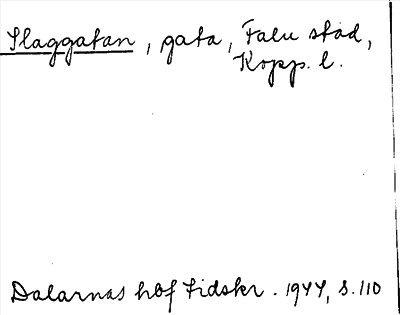 Slaggatan, gata, Falu stad,
Kopp. l.
Dalarnas hbf Tidskr. 1944, s. 110